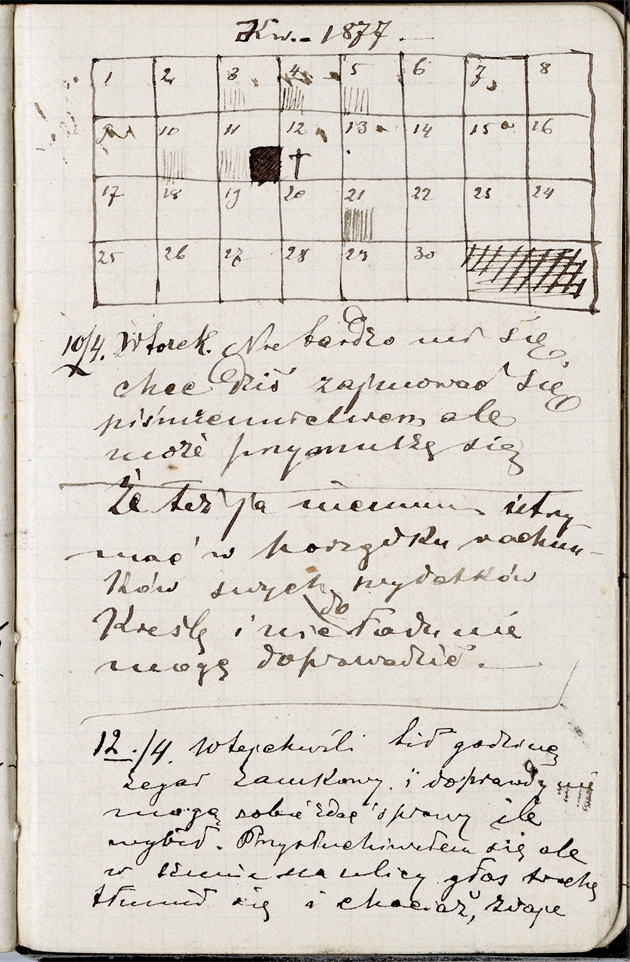 Kw. - 1877. -
1 2 3 4 5 6 7 8
10 11 12 13 14 15 16
17 18 19 20 21 22 23 24
25 26 27 28 29 30
10/4. Wtorek. Nie bardzo mi się
chce dziś zajmować się
piśmiennictwem ale
może przymuszę się
Że też ja nieumiem utrzy
mać w porządku rachun-
ków swych wydatków
do
Kreślę i nie ładu nie
mogę doprowadzić. -
12./4. W tej chwili bił godzinę
zegar zamkowy i doprawdy
mogę sobie zdać sprawy ile
wybił. Przysłuchiwałem się ale
w na ulicy głos trochę
tłumił się i chociaż, zdaje